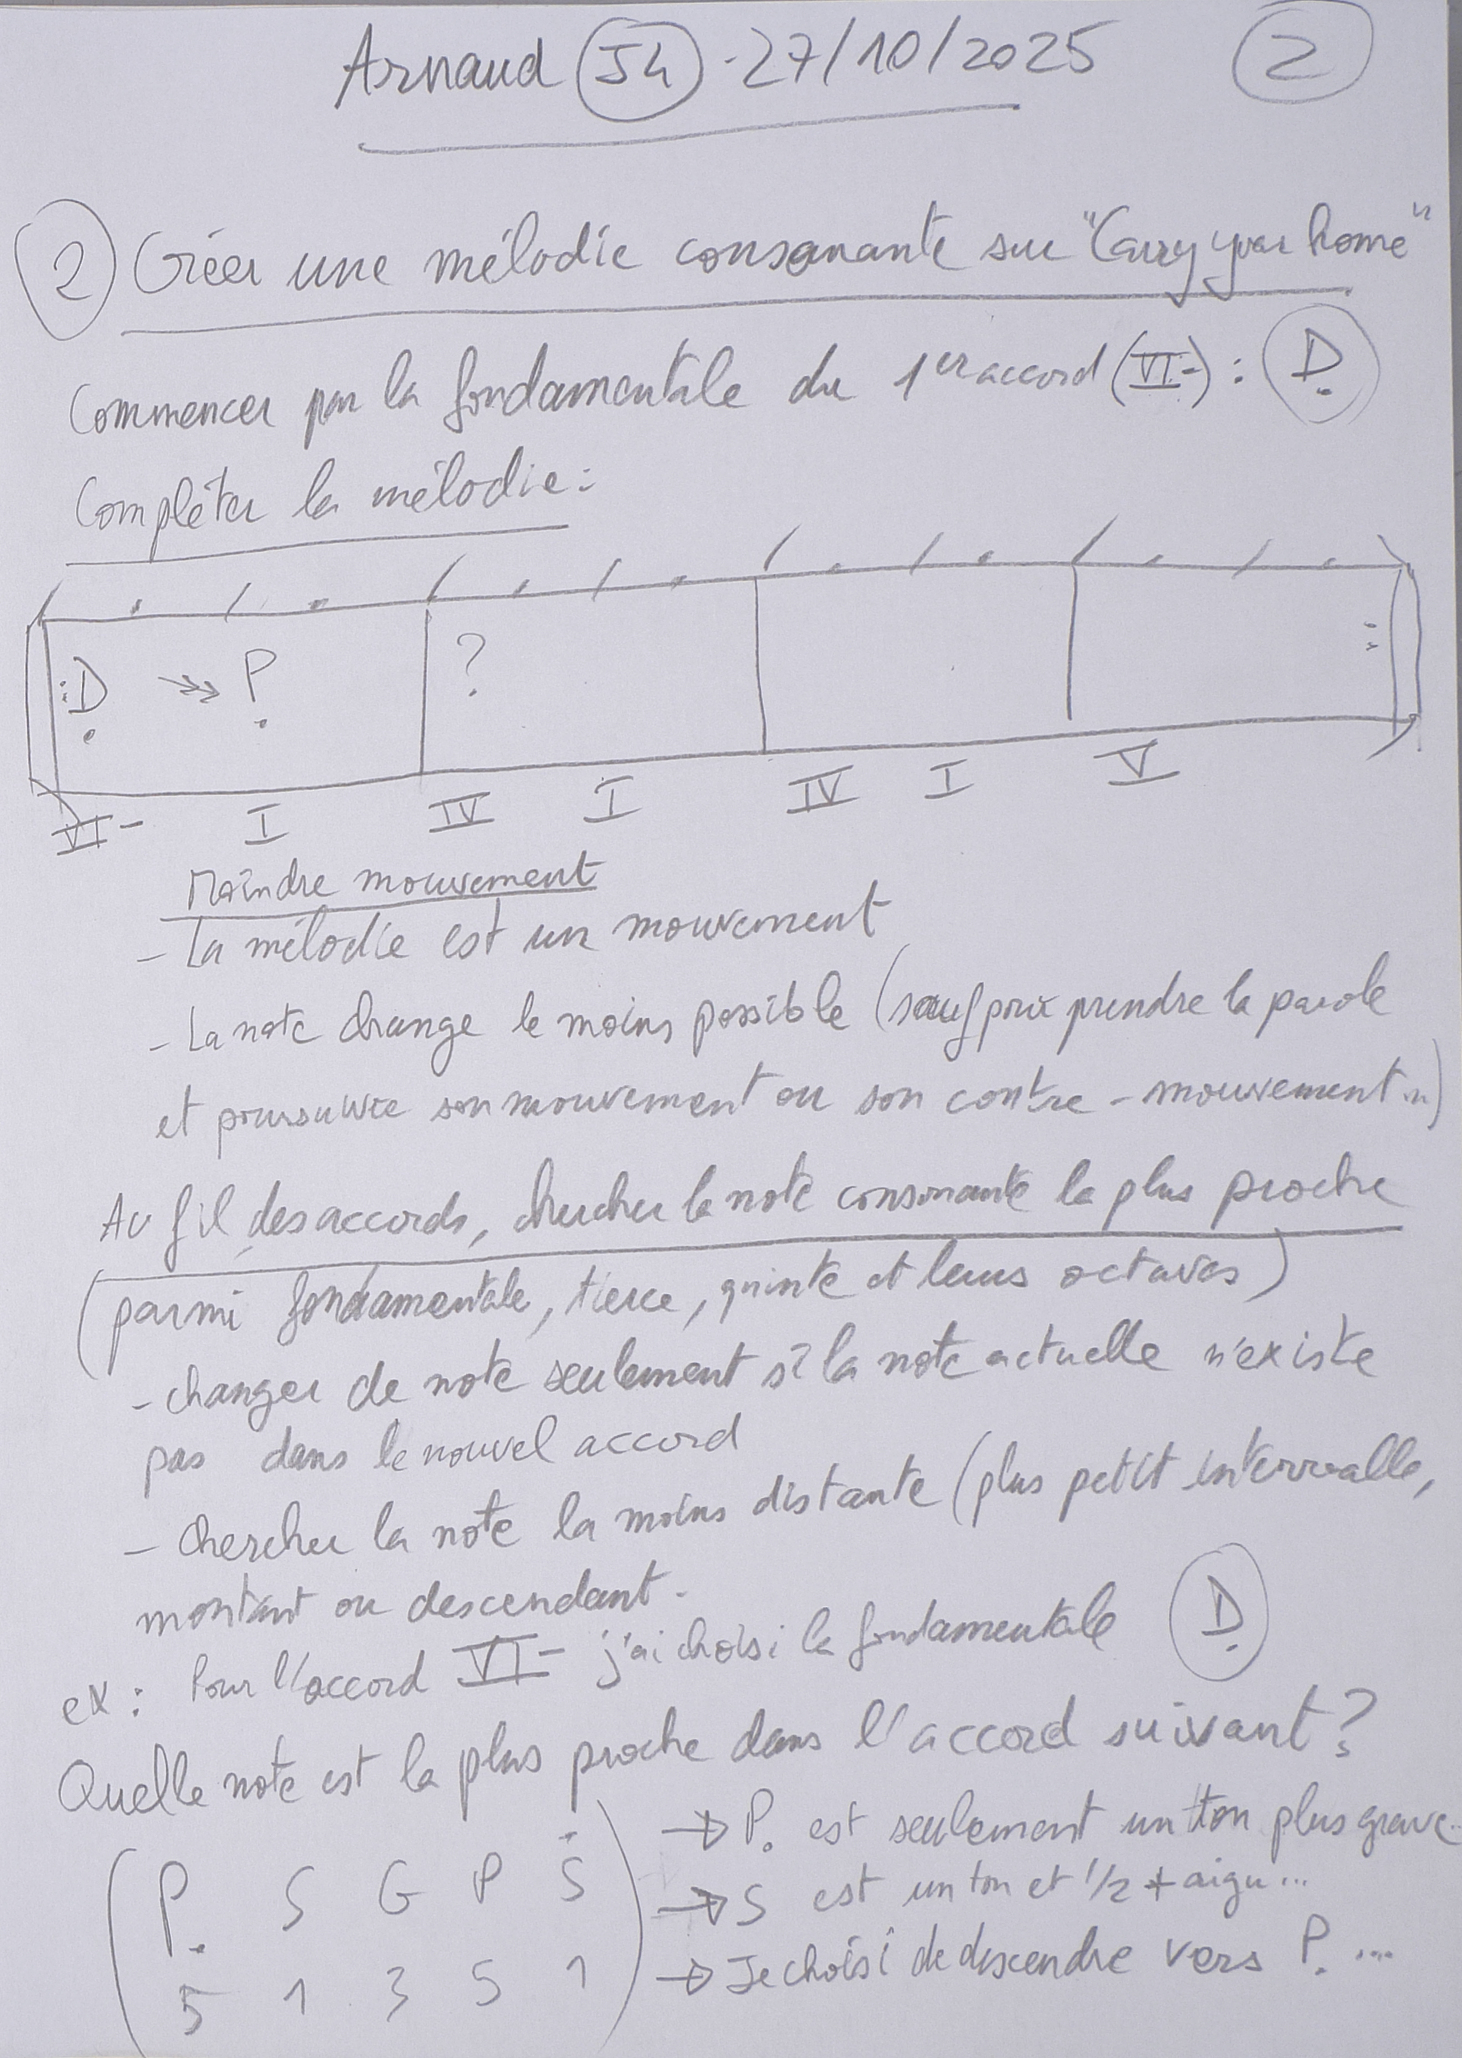 Arnaud J4 - 27/10/2025 2
2 Créer une mélodie consonante sur "Carry your home"
Commencer par la fondamentale du 1er accord (VI-) : Ḍ
Compléter la mélodie :
/ . / . / . / . / . / . / . / .
:Ḍ →>> P̣ ? :
VI- I IV I IV I V
Moindre mouvement
- La mélodie est un mouvement
- La note change le moins possible (sauf pour prendre la parole
et poursuivre son mouvement ou son contre-mouvement...)
Au fil des accords, chercher la note consonante la plus proche
(parmi fondamentale, tierce, quinte et leurs octaves)
- changer de note seulement si la note actuelle n'existe
pas dans le nouvel accord
- chercher la note la moins distante (plus petit intervalle,
montant ou descendant.
ex : Pour l'accord VI- j'ai choisi la fondamentale Ḍ
Quelle note est la plus proche dans l'accord suivant ?
(P. S G P Ṡ) → P. est seulement un ton plus grave..
→ S est un ton et 1/2 + aigu...
5 1 3 5 1 → Je choisi de descendre vers P. ...